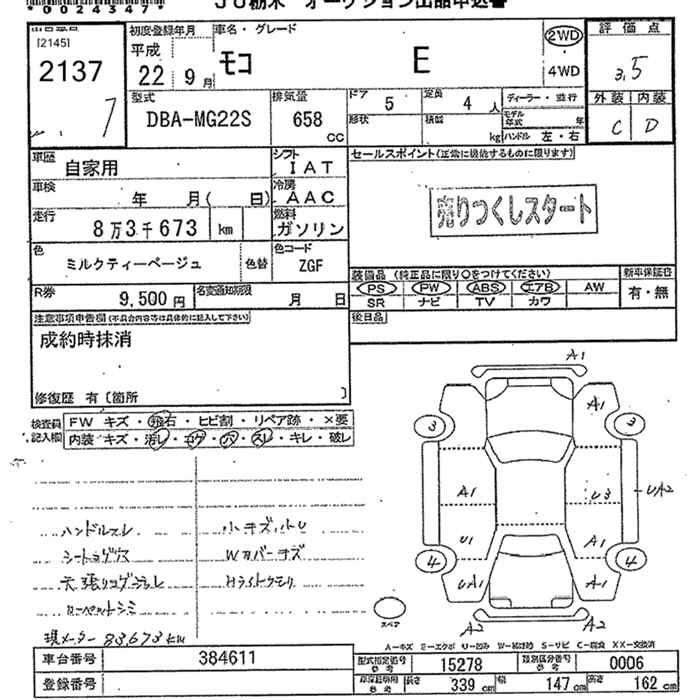 *0024347*
JU栃木 オークション出品申込書
出品番号
[2145]
2137
初度登録年月
平成
22年9月
車名・グレード
モコ E
2WD
4WD
評価点
3.5
外装 内装
C D
型式
DBA-MG22S
排気量
658
CC
ドア
5
定員
4人
形状
積載
kg
ディーラー・並行
モデル年式
年
ハンドル 左・右
車歴
自家用
シフト
IAT
車検
年 月( 日)
冷房
AAC
走行
8万3千673 km
燃料
ガソリン
色
ミルクティーベージュ
色替
色コード
ZGF
R券
9,500円
名変通知期限
月 日
セールスポイント(正常に機能するものに限ります)
売りつくしスタート
装備品 (純正品に限り○をつけてください)
新車保証書
PS PW ABS エアB AW
SR ナビ TV カワ
有・無
後日品
注意事項申告欄(不具合内容等は具体的に記入して下さい)
成約時抹消
修復歴 有〔箇所 〕
検査員記入欄
FW キズ・飛石・ヒビ割・リペア跡・×要
内装 キズ・汚レ・コゲ・穴・スレ・キレ・破レ
ハンドルスレ
小キズ小U
シートコゲ穴
Wカバーキズ
天張りコゲシミ
Hライトクモリ
カーペットシミ
現メーター 83,673km
A1
A1
3
3
A1
U3
UA2
U1
A1
4
4
UA1
A1
A2
A2
スペア
A-キズ E-エクボ U-凹み W-補修跡 S-サビ C-腐食 XX-交換済
車台番号
384611
登録番号
型式指定番号
参考
15278
類別区分番号
参考
0006
車庫証明用
参考
長さ
339 cm
幅
147 cm
高さ
162 cm